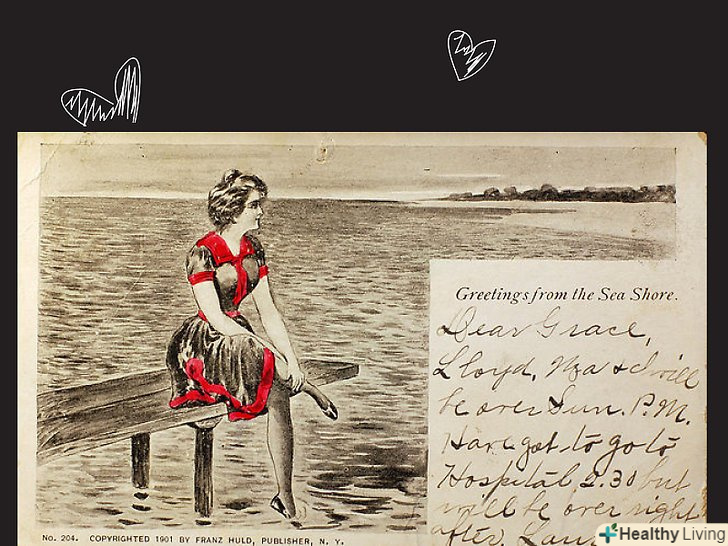 Greetings from the Sea Shore.
Dear Grace,
Lloyd, Ma & I will
be over Sun. P.M.
Have got to go to
Hospital 2.30 but
will be over right
after.
No. 204. COPYRIGHTED 1901 BY FRANZ HULD, PUBLISHER, N. Y.
Healthy Living